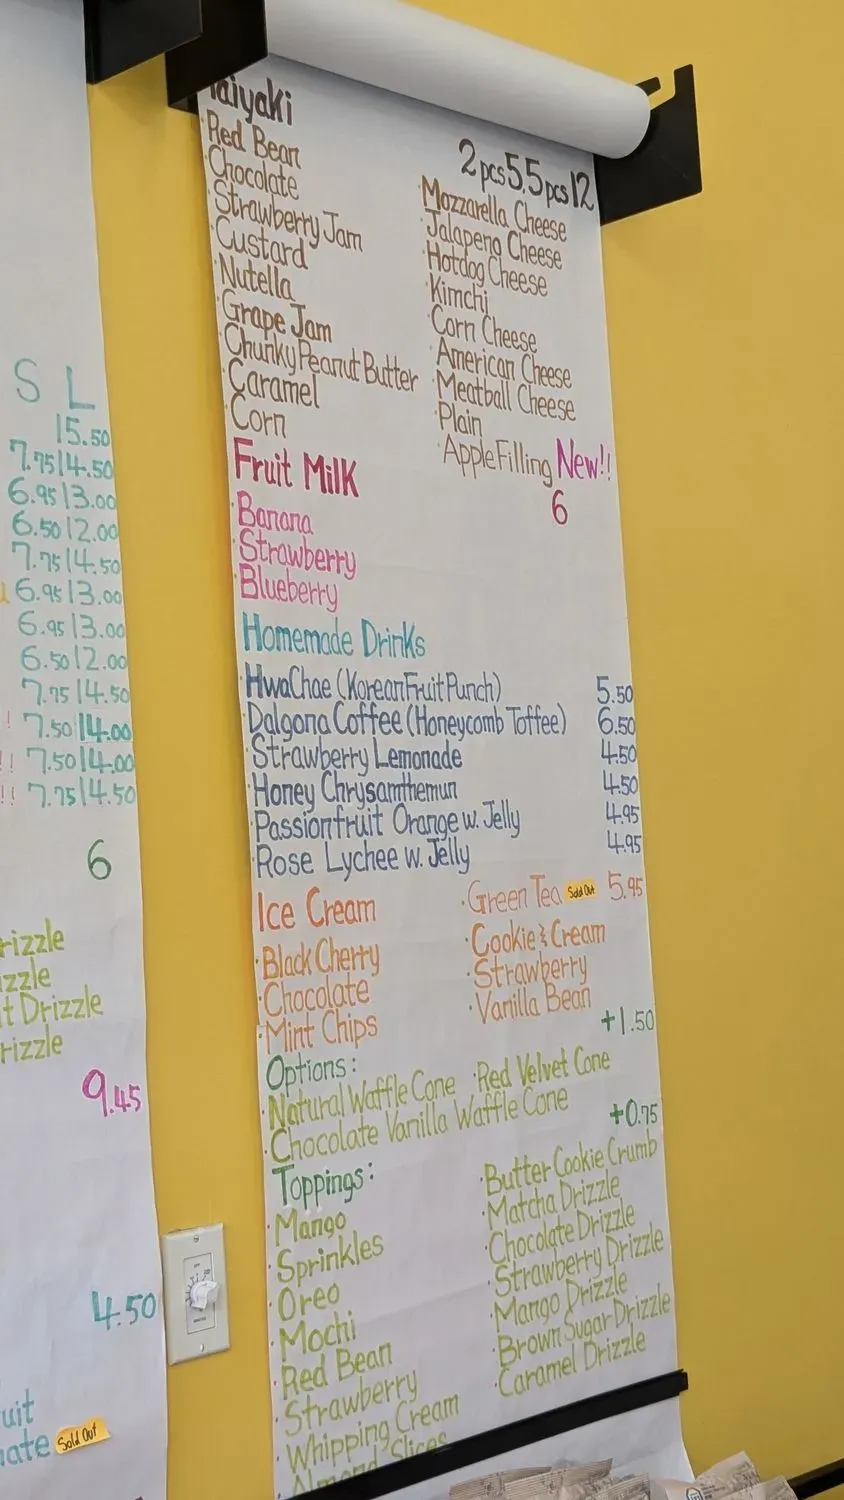 S L
15.50
7.75 14.50
6.95 13.00
6.50 12.00
7.75 14.50
6.95 13.00
6.95 13.00
6.50 12.00
7.75 14.50
! 7.50 14.00
!! 7.50 14.00
!! 7.75 14.50
6
9.45
4.50
Sold Out
Taiyaki
2pcs 5.5pcs 12
· Red Bean
· Chocolate
· Strawberry Jam
· Custard
· Nutella
· Grape Jam
· Chunky Peanut Butter
· Caramel
· Corn
· Mozzarella Cheese
· Jalapeno Cheese
· Hotdog Cheese
· Kimchi
· Corn Cheese
· American Cheese
· Meatball Cheese
· Plain
· Apple Filling New!!
Fruit Milk 6
· Banana
· Strawberry
· Blueberry
Homemade Drinks
· HwaChae (Korean Fruit Punch) 5.50
· Dalgona Coffee (Honeycomb Toffee) 6.50
· Strawberry Lemonade 4.50
· Honey Chrysanthemun 4.50
· Passionfruit Orange w. Jelly 4.95
· Rose Lychee w. Jelly 4.95
Ice Cream 5.95
· Black Cherry
· Chocolate
· Mint Chips
· Green Tea Sold Out
· Cookie & Cream
· Strawberry
· Vanilla Bean
Options: +1.50
· Natural Waffle Cone · Red Velvet Cone
· Chocolate Vanilla Waffle Cone
Toppings: +0.75
· Mango
· Sprinkles
· Oreo
· Mochi
· Red Bean
· Strawberry
· Whipping Cream
· Almond Slices
· Butter Cookie Crumb
· Matcha Drizzle
· Chocolate Drizzle
· Strawberry Drizzle
· Mango Drizzle
· Brown Sugar Drizzle
· Caramel Drizzle